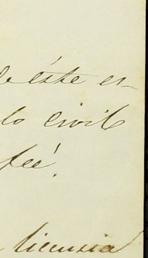 de éste es-
lo civil
feé.
licencia